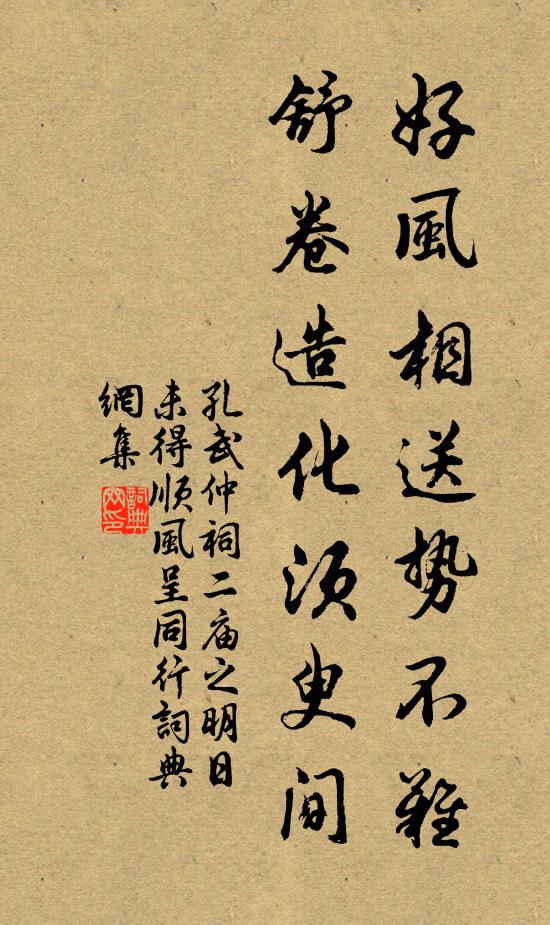 好風相送勢不難
舒卷造化須臾间
孔武仲祠二庙之明日
未得順風呈同行詞典
網集
詞典网印